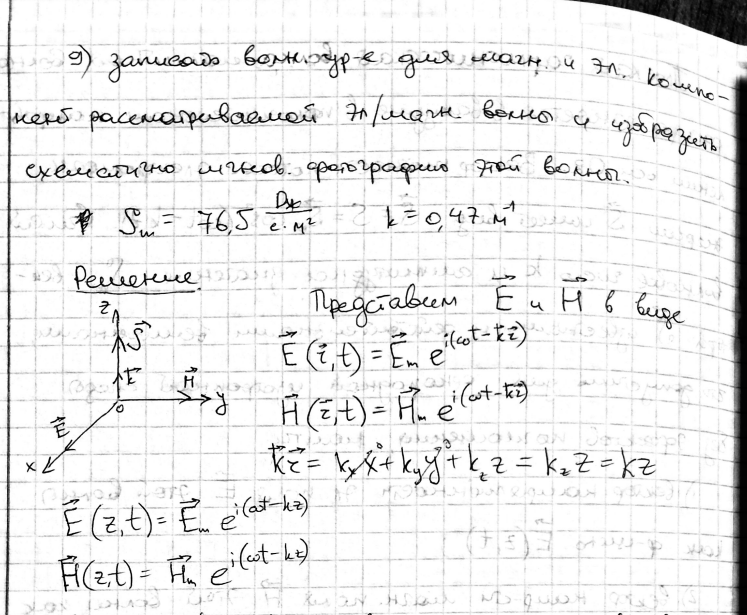 9) записать волн. ур-е для магн. и эл. компо-
нент рассматриваемой эл/магн. волны и изобразить
схематично мгнов. фотографию этой волны.
S_m = 76,5 Дж/с·м² k = 0,47 м⁻¹
Решение.
Представим E⃗ и H⃗ в виде
z
S⃗
k⃗
H⃗
0
y
E⃗
x
E⃗(r⃗,t) = E⃗_m e^{i(ωt-k⃗r⃗)}
H⃗(r⃗,t) = H⃗_m e^{i(ωt-k⃗r⃗)}
k⃗r⃗ = k_x x⁰ + k_y y⁰ + k_z z = k_z z = kz
E⃗(z,t) = E⃗_m e^{i(ωt-kz)}
H⃗(z,t) = H⃗_m e^{i(ωt-kz)}